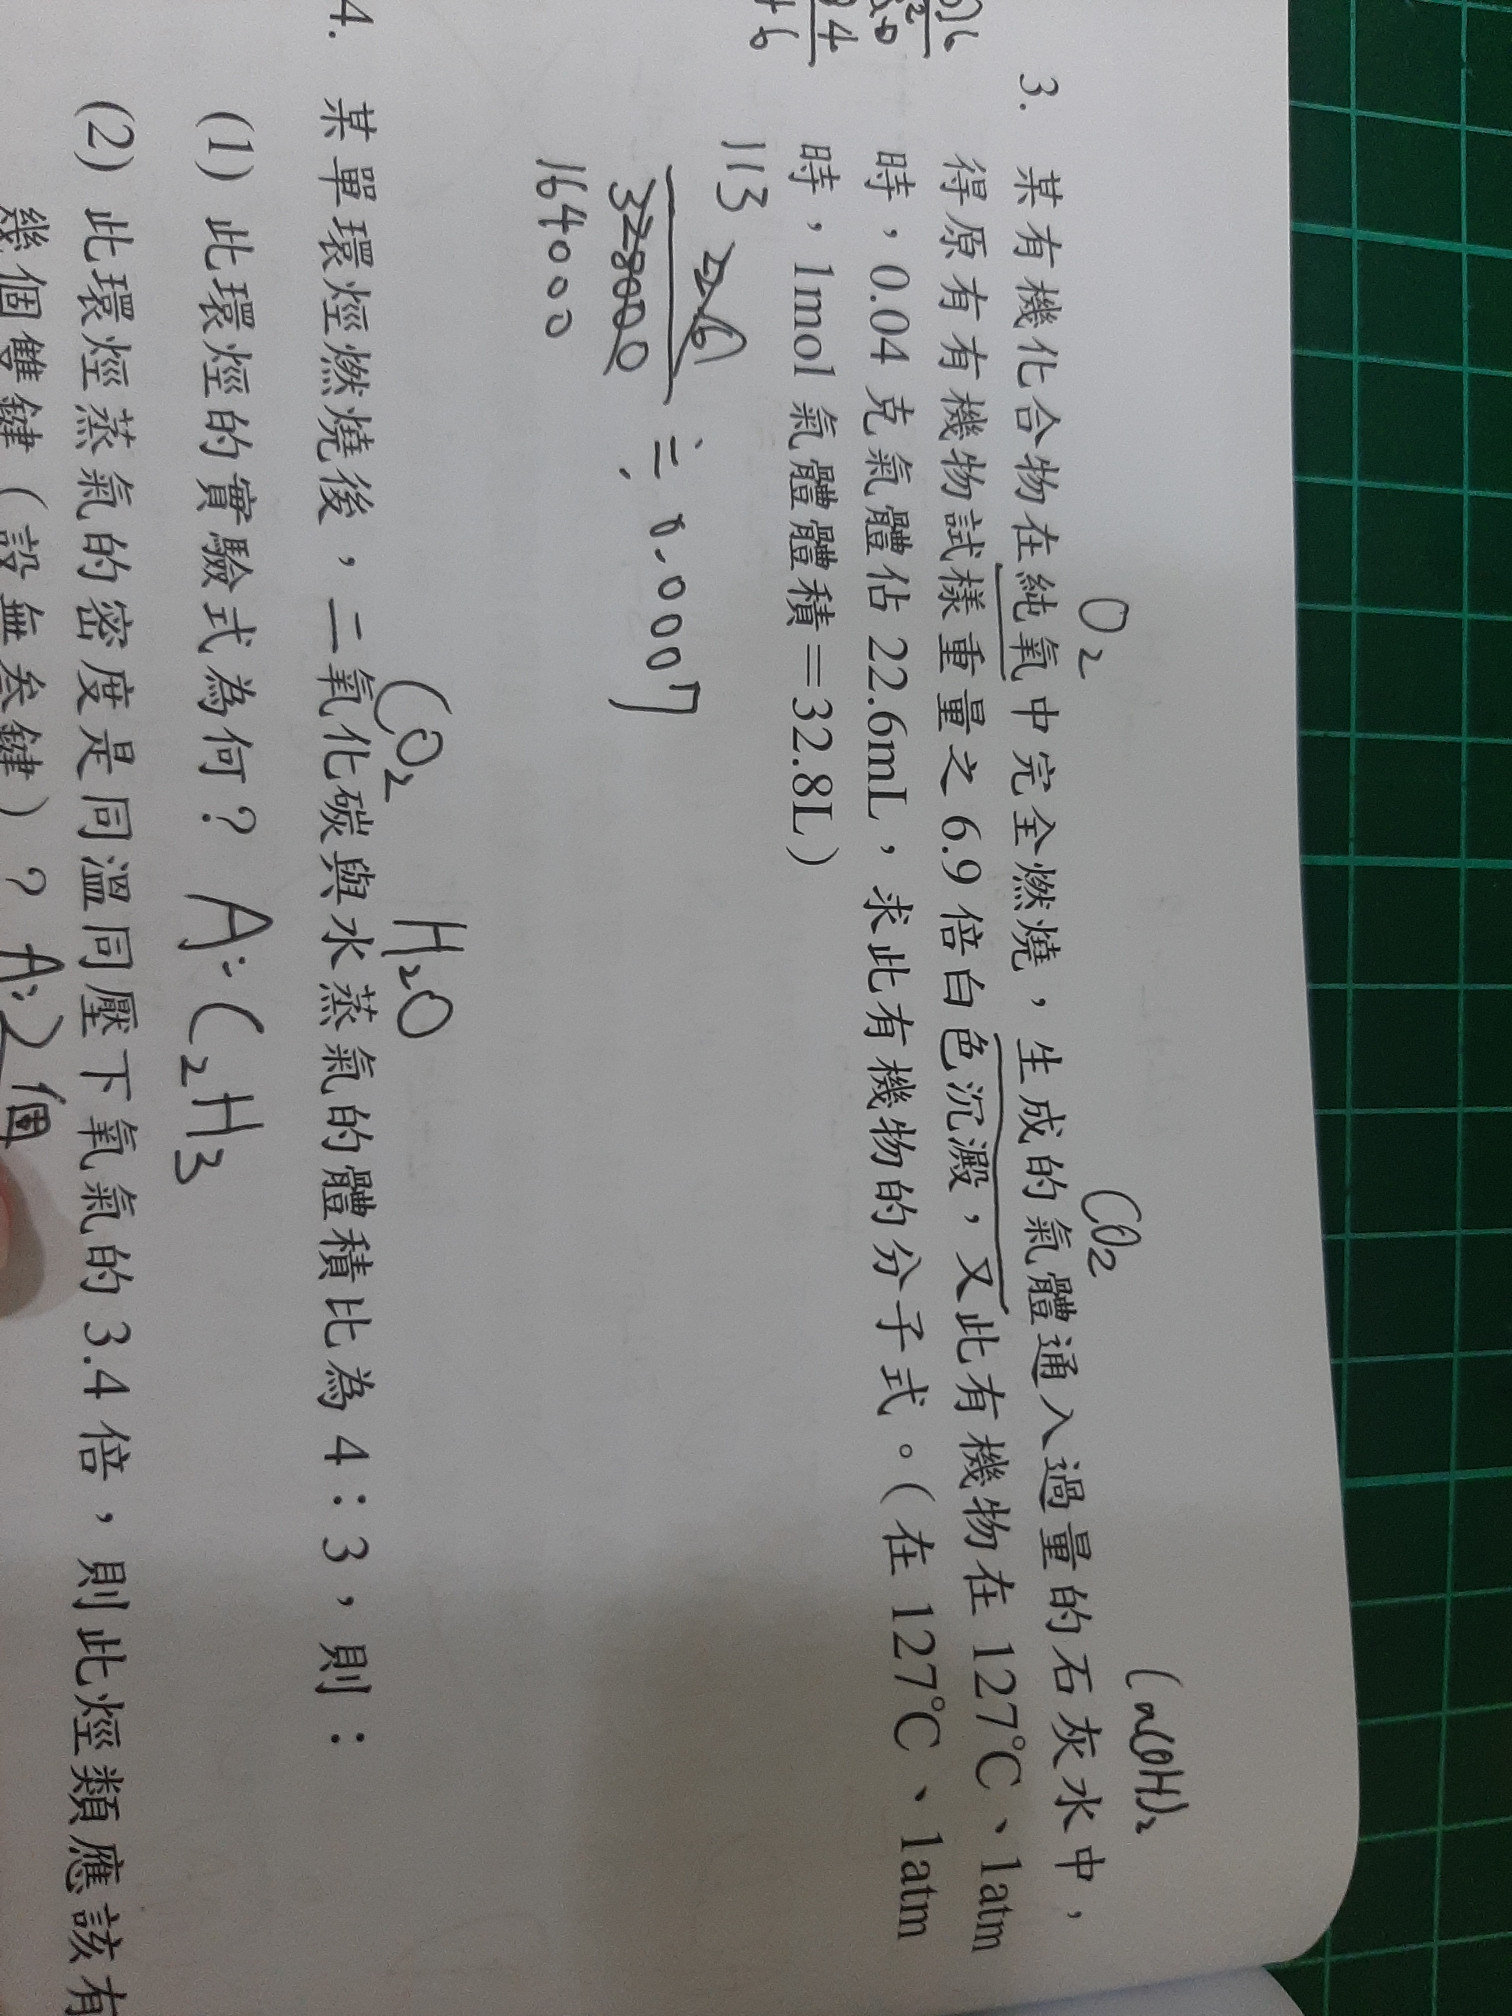 O₂
CO₂
Ca(OH)₂
3. 某有機化合物在純氧中完全燃燒，生成的氣體通入過量的石灰水中，
得原有有機物試樣重量之 6.9 倍白色沉澱，又此有機物在 127℃、1atm
時，0.04 克氣體佔 22.6mL，求此有機物的分子式。（在 127℃、1atm
時，1mol 氣體體積＝32.8L）
113
32800 ≒ 0.0007
164000
CO₂ H₂O
4. 某單環烴燃燒後，二氧化碳與水蒸氣的體積比為 4：3，則：
(1) 此環烴的實驗式為何？ A: C₂H₃
(2) 此環烴蒸氣的密度是同溫同壓下氧氣的 3.4 倍，則此烴類應該有
幾個雙鍵（設無叁鍵）？ A: 2個